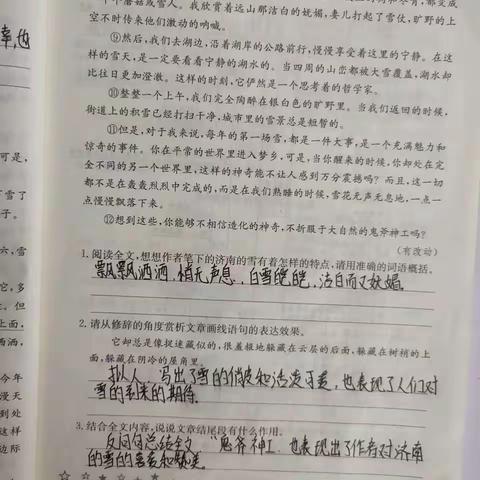 个蘑菇或雪人。我欣赏着远山那洁白的妩媚，妻儿打起了雪仗，旷野的上
空不时传来他们激动的呐喊。
⑨然后，我们去湖边，沿着湖岸的公路前行，慢慢享受着这里的宁静。在这
样的雪天，是一定要看看宁静的湖水的。当四周的山峦都被大雪覆盖，湖水却
比往日更加澄澈。这样的时刻，它俨然是一个思考着的哲学家。
⑩整整一个上午，我们完全陶醉在银白色的旷野里。当我们返回的时候，
街道上的积雪已经打扫干净，城市里的雪景总是短暂的。
⑪但是，对于我来说，每年的第一场雪，都是一件大事，是一个充满魅力和
惊奇的事件。你在平常的世界里进入梦乡，可是，当你醒来的时候，你却处在完
全不同的另一个世界里，这样的神奇能不让人感到万分震撼吗？而且，这一切
都不是在轰轰烈烈中完成的，而是在我们熟睡的时候，雪花无声无息地，一点一
点慢慢飘落下来。
⑫想到这些，你能够不相信造化的神奇，不折服于大自然的鬼斧神工吗？
（有改动）
1. 阅读全文，想想作者笔下的济南的雪有着怎样的特点，请用准确的词语概括。
飘飘洒洒，悄无声息，白雪皑皑，洁白而又妩媚
2. 请从修辞的角度赏析文章画线语句的表达效果。
它却总是像捉迷藏似的，很羞赧地躲藏在云层的后面，躲藏在树梢的上
面，躲藏在阴冷的屋角里。
拟人，写出了雪的俏皮和活泼可爱，也表现了人们对
雪的到来的期待。
3. 结合全文内容，说说文章结尾段有什么作用。
反问句总结全文，"鬼斧神工，也表现出了作者对济南
的雪的喜爱和赞美。
幸，也
可是，
下雪了
子。
六，雪
它，多
上。但
上面，
洒洒，
今年
漫天
到处
这样
边际